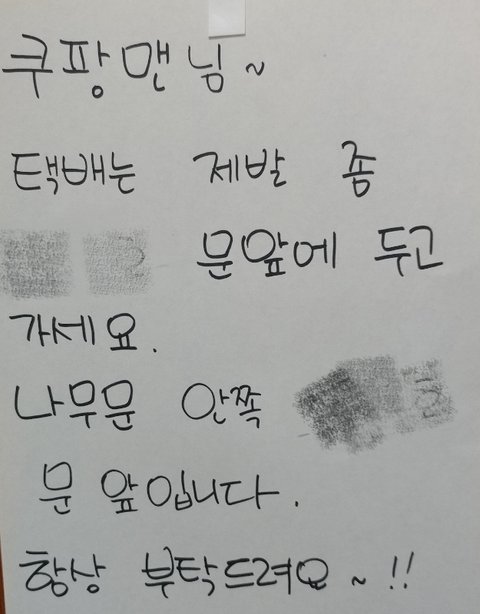 쿠팡맨님~
택배는 제발 좀
문앞에 두고
가세요.
나무문 안쪽
문 앞입니다.
항상 부탁드려요~!!